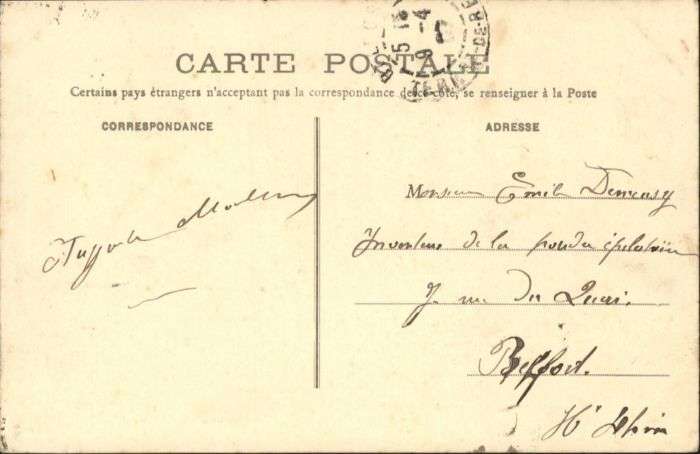 CARTE POSTALE
Certains pays étrangers n'acceptant pas la correspondance de ce côté, se renseigner à la Poste
CORRESPONDANCE
ADRESSE
Monsieur Emile Demeusy
Inventeur de la poudre épilatoire
7 rue du Quai.
Belfort.
Ht Rhin